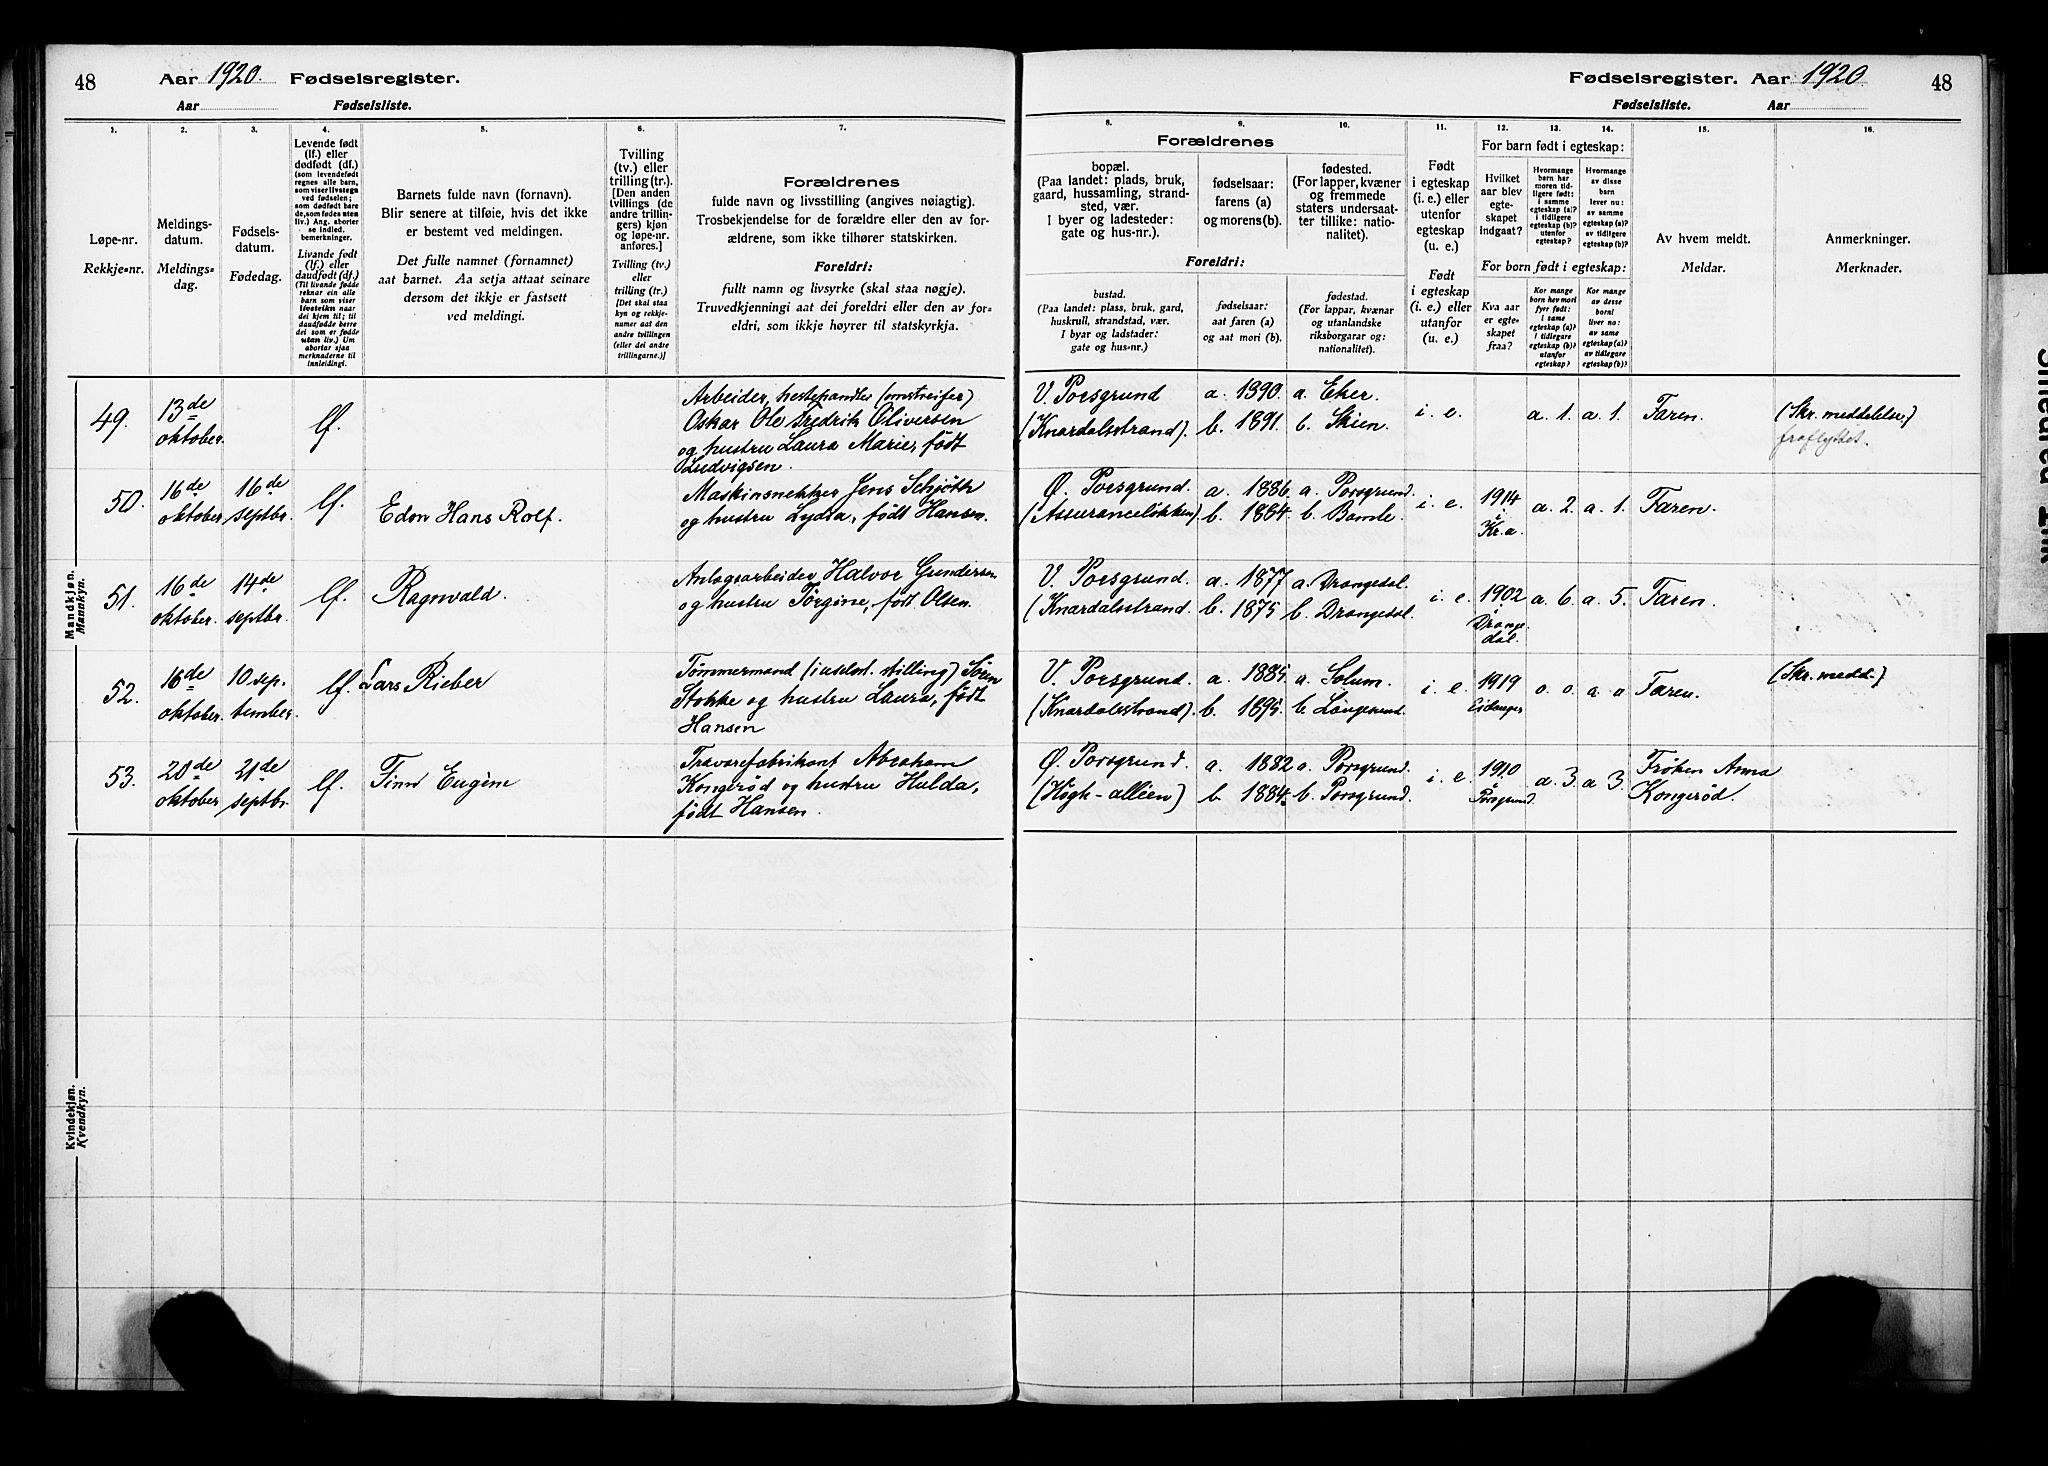 48
Aar 1920. Fødselsregister.
Aar Fødselsliste.
1.
2.
3.
4.
5.
6.
7.
Løpe-nr.
Rekkje-nr.
Meldings-
datum.
Meldings-
dag.
Fødsels-
datum.
Fødedag.
Levende født
(lf.) eller
dødfødt (df.)
(som levendefødt
regnes alle barn,
som viser livstegn
ved fødselen;
som dødfødt bare
de, som fødes uten
liv.) Ang. aborter
se indled.
bemerkninger.
Livande født
(lf.) eller
daudfødt (df.)
(Til livande fødde
reknar ein alle
barn som viser
livsteikn naar
dei kjem til; til
daudfødde berre
dei som er fødde
utan liv.) Um
abortar sjaa
merknaderne til
innleidingi.
Barnets fulde navn (fornavn).
Blir senere at tilføie, hvis det ikke
er bestemt ved meldingen.
Det fulle namnet (fornamnet)
aat barnet. Aa setja attaat seinare
dersom det ikkje er fastsett
ved meldingi.
Tvilling
(tv.) eller
trilling (tr.).
[Den anden
tvillings (de
andre trillin-
gers) kjøn
og løpe-nr.
anføres.]
Tvilling (tv.)
eller
trilling (tr.)
[Det skal staa
kyn og rekkje-
numer aat den
andre tvillingen
(eller dei andre
trillingarne.)]
Forældrenes
fulde navn og livsstilling (angives nøiagtig).
Trosbekjendelse for de forældre eller den av for-
ældrene, som ikke tilhører statskirken.
Foreldri:
fullt namn og livsyrke (skal staa nøgje).
Truvedkjenningi aat dei foreldri eller den av for-
eldri, som ikkje høyrer til statskyrkja.
Mandkjøn.
Mannkyn.
49.
13de
oktober.
lf.
Arbeider, hestehandler (omstreifer)
Oskar Ole Fredrik Oliversen
og hustru Laura Marie, født
Ludvigsen.
50.
16de
oktober
16de
septbr.
lf.
Edon Hans Rolf.
Maskinsnekker Jens Schjøth
og hustru Lydia, født Hansen.
51.
16de
oktober.
14de
septbr.
lf.
Ragnvald.
Anlægsarbeider Halvor Gundersen
og hustru Torgine, født Olsen.
52.
16de
oktober.
10 sep-
tember.
lf.
Lars Rieber
Tømmermand (i uselvst. stilling) Søren
Stokke og hustru Laura, født
Hansen
53.
20de
oktober
21de
septbr.
lf.
Finn Eugène
Travarefabrikant Abraham
Kongerød og hustru Hulda,
født Hansen.
Kvindekjøn.
Kvendkyn.
Fødselsregister. Aar 1920. 48
Fødselsliste. Aar
8.
9.
10.
11.
12.
13.
14.
15.
16.
Forældrenes
bopæl.
(Paa landet: plads, bruk,
gaard, hussamling, strand-
sted, vær.
I byer og ladesteder:
gate og hus-nr.).
fødselsaar:
farens (a)
og morens (b).
fødested.
(For lapper, kvæner
og fremmede
staters undersaat-
ter tillike: natio-
nalitet).
Foreldri:
bustad.
(Paa landet: plass, bruk, gard,
huskrull, strandstad, vær.
I byar og ladstader:
gate og hus-nr.)
fødselsaar:
aat faren (a)
og aat mori (b).
fødestad.
(For lappar, kvænar
og utanlandske
riksborgarar og:
nationalitet).
Født
i egteskap
(i. e.) eller
utenfor
egteskap
(u. e.)
Født
i egteskap
(i. e.) eller
utanfor
(u. e.)
For barn født i egteskap:
Hvilket
aar blev
egte-
skapet
indgaat?
Hvormange
barn har
moren tid-
ligere født:
i samme
egteskap (a)?
i tidligere
egteskap (b)?
utenfor
egteskap?
Hvormange
av disse
barn
lever nu:
av samme
egteskap (a)?
av tidligere
egteskap (b)?
For born født i egteskap:
Kva aar
er egte-
skapet
fraa?
Kor mange
born hev mori
fyrr født:
i same
egteskap (a)?
i tidlegare
egteskap (b)?
utanfor
egteskap?
Kor mange
av desse
borni
liver no:
av same
egteskap (a)?
av tidlegare
egteskap (b)?
Av hvem meldt.
Meldar.
Anmerkninger.
Merknader.
V. Porsgrund
(Knardalsstrand).
a. 1890.
b. 1891.
a. Eker.
b. Skien.
i. e.
a. 1.
a. 1.
Faren.
(Skr. meddelelse.)
fraflyttet.
Ø. Porsgrund.
(Assuranceløkken).
a. 1886.
b. 1884.
a. Porsgrund.
b. Bamle.
i. e.
1914
i
Kr.a.
a. 2.
a. 1.
Faren.
V. Porsgrund.
(Knardalsstrand.
a. 1877
b. 1875
a. Drangedal.
b. Drangedal.
i. e.
1902
i
Drange-
dal.
a. 6.
a. 5.
Faren.
V. Porsgrund.
(Knardalsstrand).
a. 1885.
b. 1895.
a. Solum.
b. Langesund.
i. e.
1919
Eidanger
o. o.
a. o
Faren.
(Skr. medd.)
Ø. Porsgrund.
(Høgh-alléen)
a. 1882
b. 1884.
a. Porsgrund.
b. Porsgrund.
i. e.
1910
i
Porsgrund.
a. 3
a 3.
Frøken Anna
Kongerød.